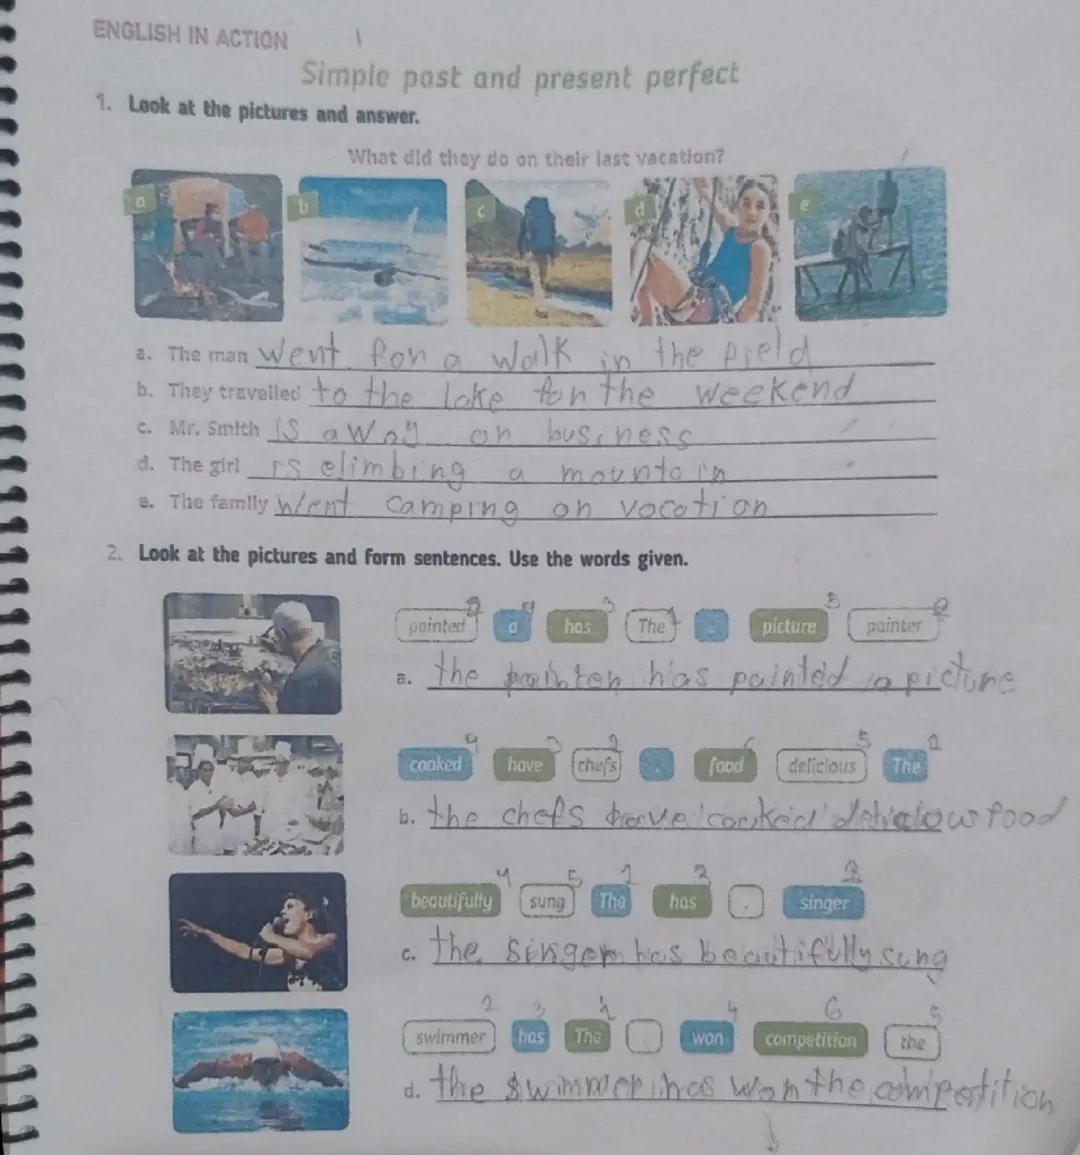 ENGLISH IN ACTION
Simple past and present perfect
1. Look at the pictures and answer.
What did they do on their last vacation?
a b c d e
a. The man went for a walk in the field
b. They travelled to the lake for the weekend
c. Mr. Smith is away on business
d. The girl is climbing a mountain
e. The family went camping on vacation
2. Look at the pictures and form sentences. Use the words given.
painted a has The . picture painter
a. the painter has painted a picture
4 3 2 6 5 1
cooked have chefs . food delicious The
b. the chefs have cooked delicious food
4 5 1 3 2
beautifully sung The has . singer
c. the singer has beautifully sung
2 3 1 4 6 5
swimmer has The . won competition the
d. the swimmer has won the competition